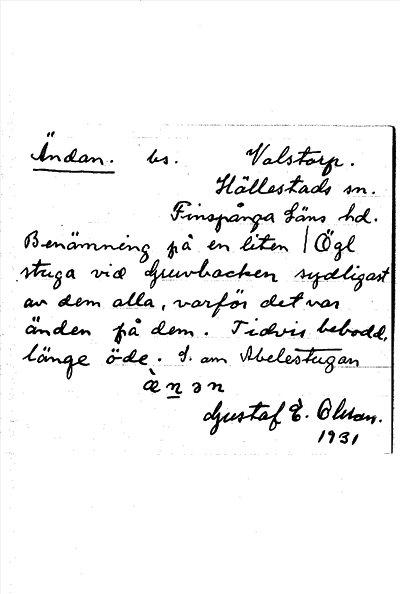 Ändan. bs. Valstorp.
Hällestads sn.
Finspånga läns hd.
Benämning på en liten / Ögl
stuga vid Gruvbacken sydligast
av dem alla, varför det var
änden på dem. Tidvis bebodd,
länge öde. d. am Abelestugan
Gustaf E. Olsson.
1931